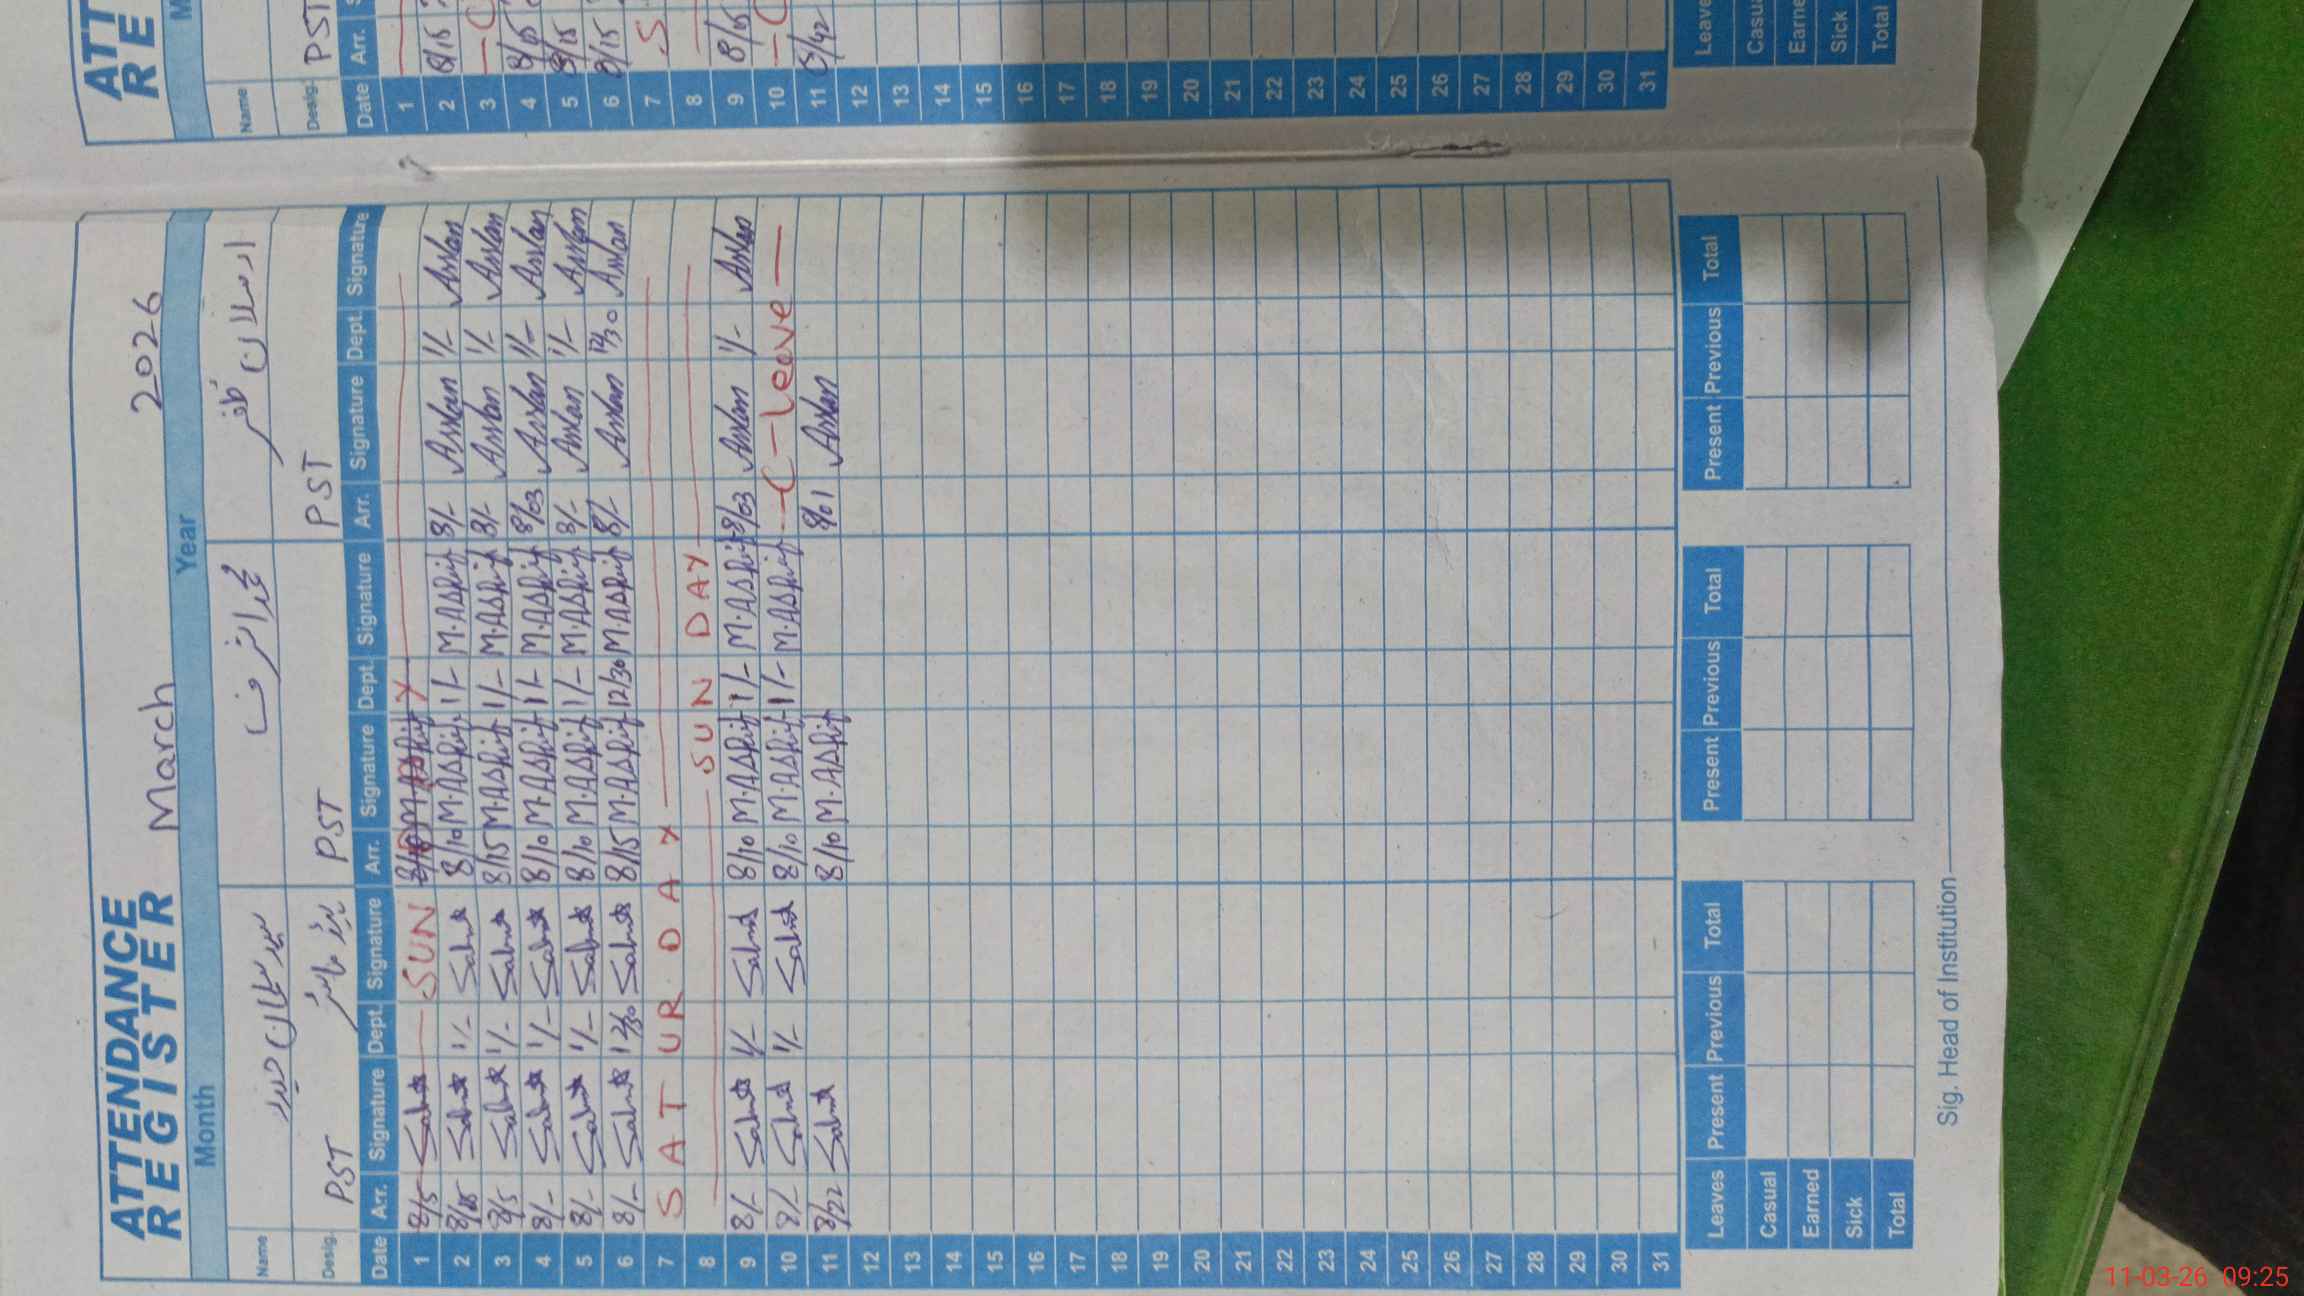 ATTENDANCE REGISTER
Month March Year 2026
Name سید سلطان حیدر محمد اشرف ارسلان ظفر
Desig. PST PST PST
Date Arr. Signature Dept. Signature Arr. Signature Dept. Signature Arr. Signature Dept. Signature
1 8/5 SUN 8/10 M.Ashrif Y
2 8/15 1/- 8/10 M.Ashrif 1/- M.Ashrif 8/- Arslan 1/- Arslan
3 8/5 1/- 8/15 M.Ashrif 1/- M.Ashrif 8/- Arslan 1/- Arslan
4 8/- 1/- 8/10 M.Ashrif 1/- M.Ashrif 8/03 Arslan 1/- Arslan
5 8/- 1/- 8/10 M.Ashrif 1/- M.Ashrif 8/- Arslan 1/- Arslan
6 8/- 12/30 8/15 M.Ashrif 12/30 M.Ashrif 8/- Arslan 12/30 Arslan
7 SATURDAY
8 SUNDAY
9 8/- 1/- 8/10 M.Ashrif 1/- M.Ashrif 8/03 Arslan 1/- Arslan
10 8/- 1/- 8/10 M.Ashrif 1/- M.Ashrif C-leave
11 8/22 8/10 M.Ashrif 8/01 Arslan
12
13
14
15
16
17
18
19
20
21
22
23
24
25
26
27
28
29
30
31
Leaves Present Previous Total Present Previous Total Present Previous Total
Casual
Earned
Sick
Total
Sig. Head of Institution
ATT
RE
M
Name
Desig. PST
Date Arr. S
1
2 8/15
3 -C
4 8/15
5 8/15
6 8/15
7 S
8
9 8/15
10 -C
11 8/42
12
13
14
15
16
17
18
19
20
21
22
23
24
25
26
27
28
29
30
31
Leave
Casua
Earne
Sick
Total
11-03-26 09:25